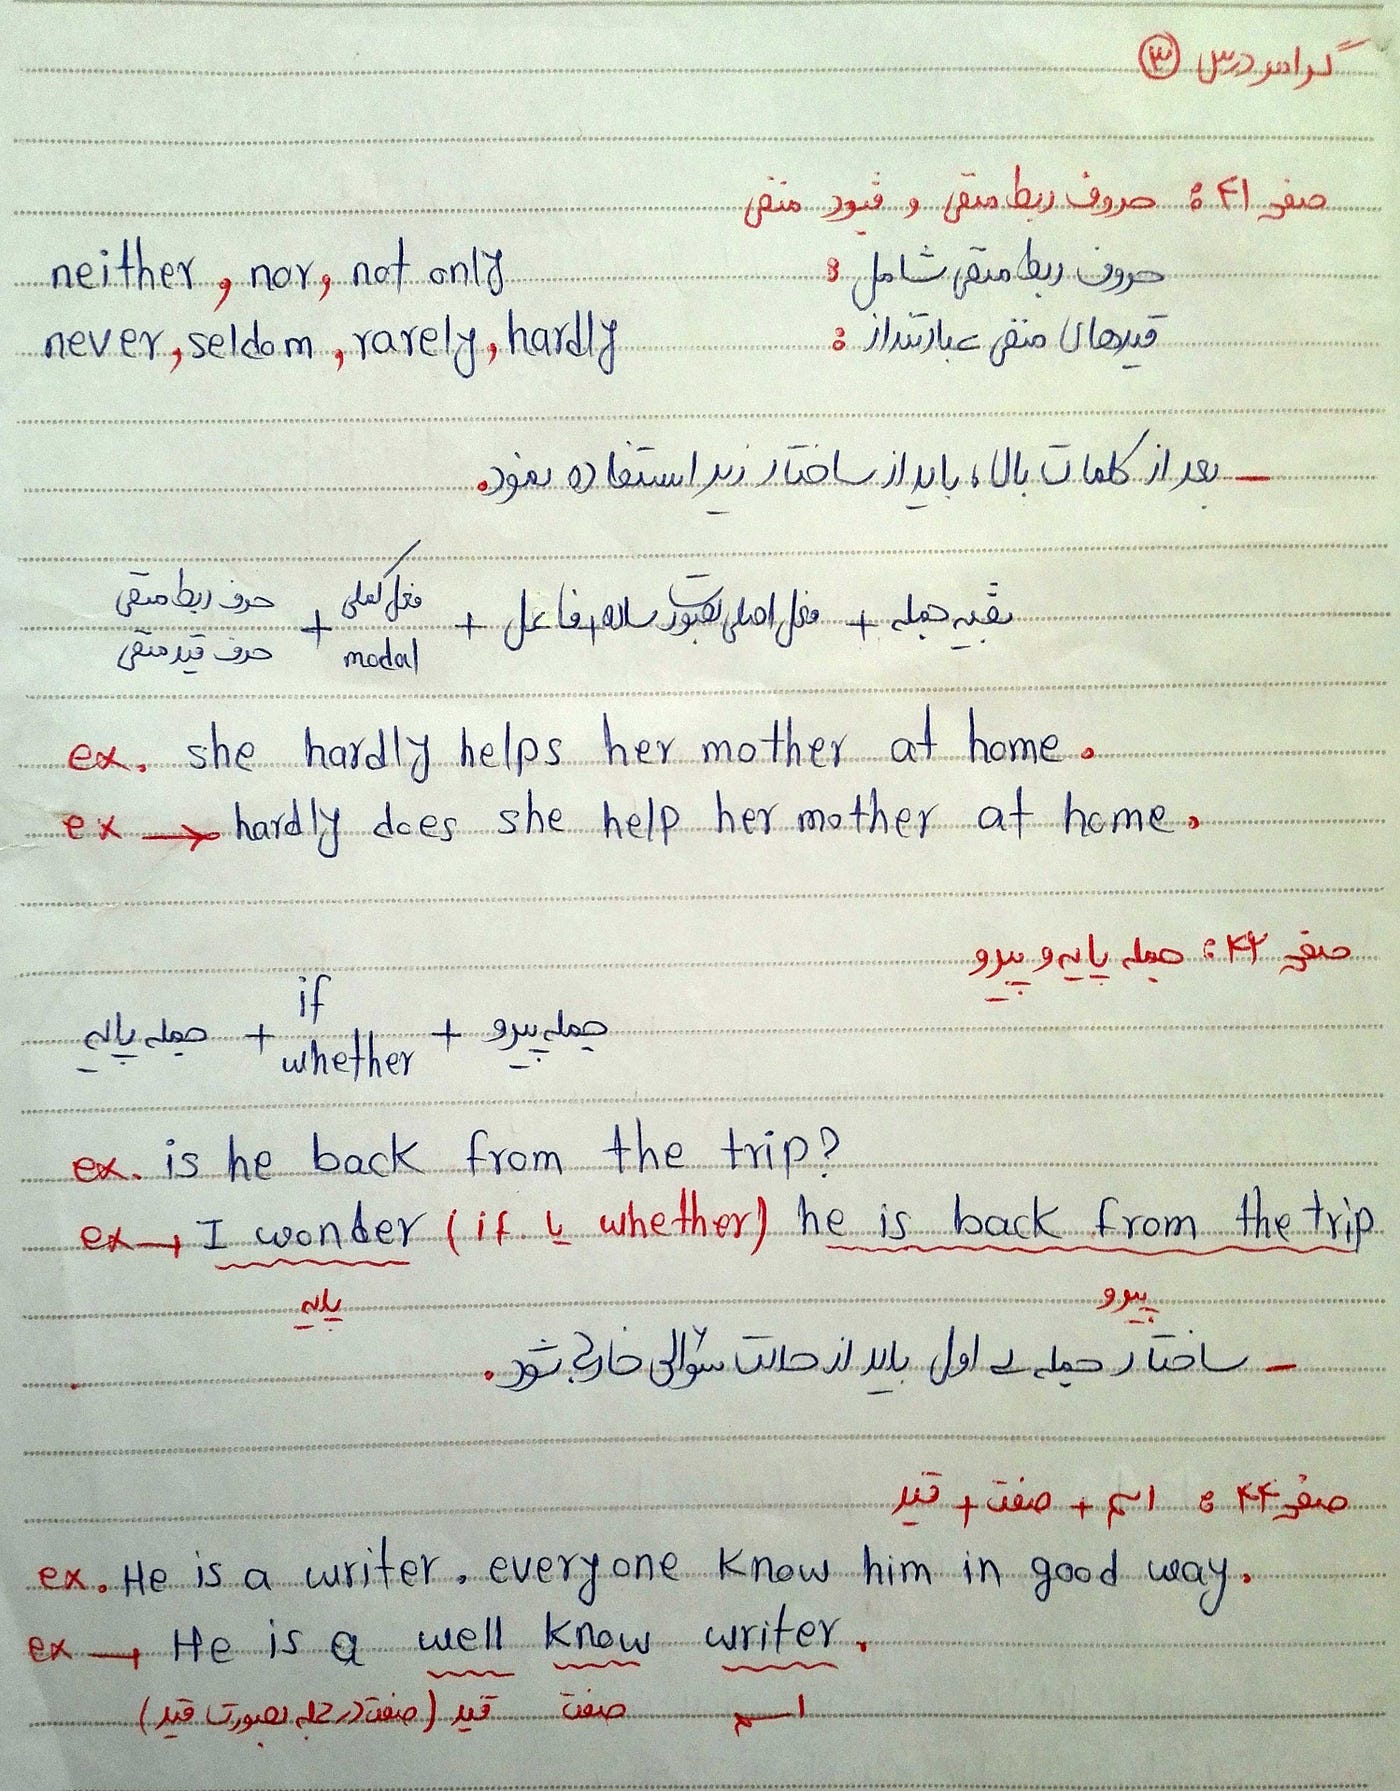 گرامر درس ۳
صفحه ۴۱ : حروف ربط منفی و قیود منفی
حروف ربط منفی شامل : neither, nor, not only
قیدهای منفی عبارتنداز : never, seldom, rarely, hardly
– بعد از کلمات بالا، باید از ساختار زیر استفاده نمود.
حرف ربط منفی / حرف قید منفی + فعل کمکی / modal + فاعل + فعل اصلی بصورت ساده + بقیه جمله
ex. she hardly helps her mother at home.
ex → hardly does she help her mother at home.
صفحه ۴۲ : جمله پایه و پیرو
جمله پایه + if / whether + جمله پیرو
ex. is he back from the trip?
ex → I wonder (if یا whether) he is back from the trip
پایه پیرو
– ساختار جمله ی اول باید از حالت سؤالی خارج شود.
صفحه ۴۴ : اسم + صفت + قید
ex. He is a writer. everyone know him in good way.
ex → He is a well know writer.
قید (صفت در جمله بصورت قید) صفت اسم